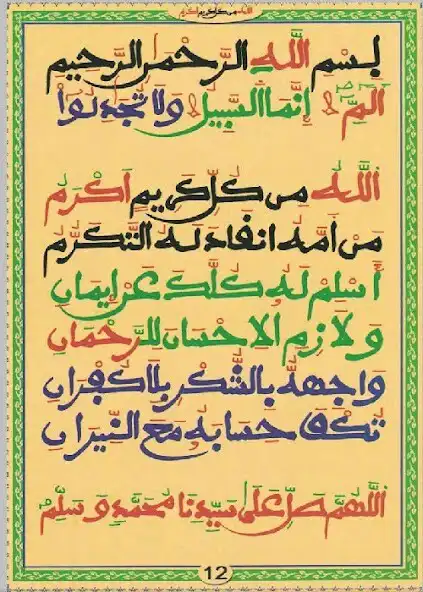 الله من كل كريم اكرم
بِسْمِ اللَّهِ الرَّحْمَنِ الرَّحِيمِ
المّ إِنَّمَا السَّبِيلُ وَلَا تُجَدِلُوا
اللَّهُ مِن كُلِّ كَرِيمٍ أَكْرَمُ
مَنْ أَمَّهُ انقَادَ لَهُ التَّكَرُّمُ
أَسْلِمْ لَهُ كُلَّكَ عَنْ إِيمَانِ
وَلَازِمِ الْإِحْسَانَ لِلرَّحْمَانِ
وَاجِهْهُ بِالشُّكْرِ بِلَا كُفْرَانِ
تُكْفَ حِسَابَهُ مَعَ النِّيرَانِ
اللَّهُمَّ صَلِّ عَلَى سَيِّدِنَا مُحَمَّدٍ وَسَلِّمْ
12